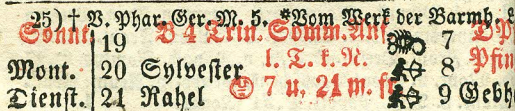 25) † B. Phar. Ger. M. 5. *Vom Werk der Barmh.
Sonnt. 19 B 4 Trin. Somm. Anf. 7
l. T. k. N.
Mont. 20 Sylvester 8 Pfin
Dienst. 21 Rahel 7 u. 21 m. fr 9 Gebh